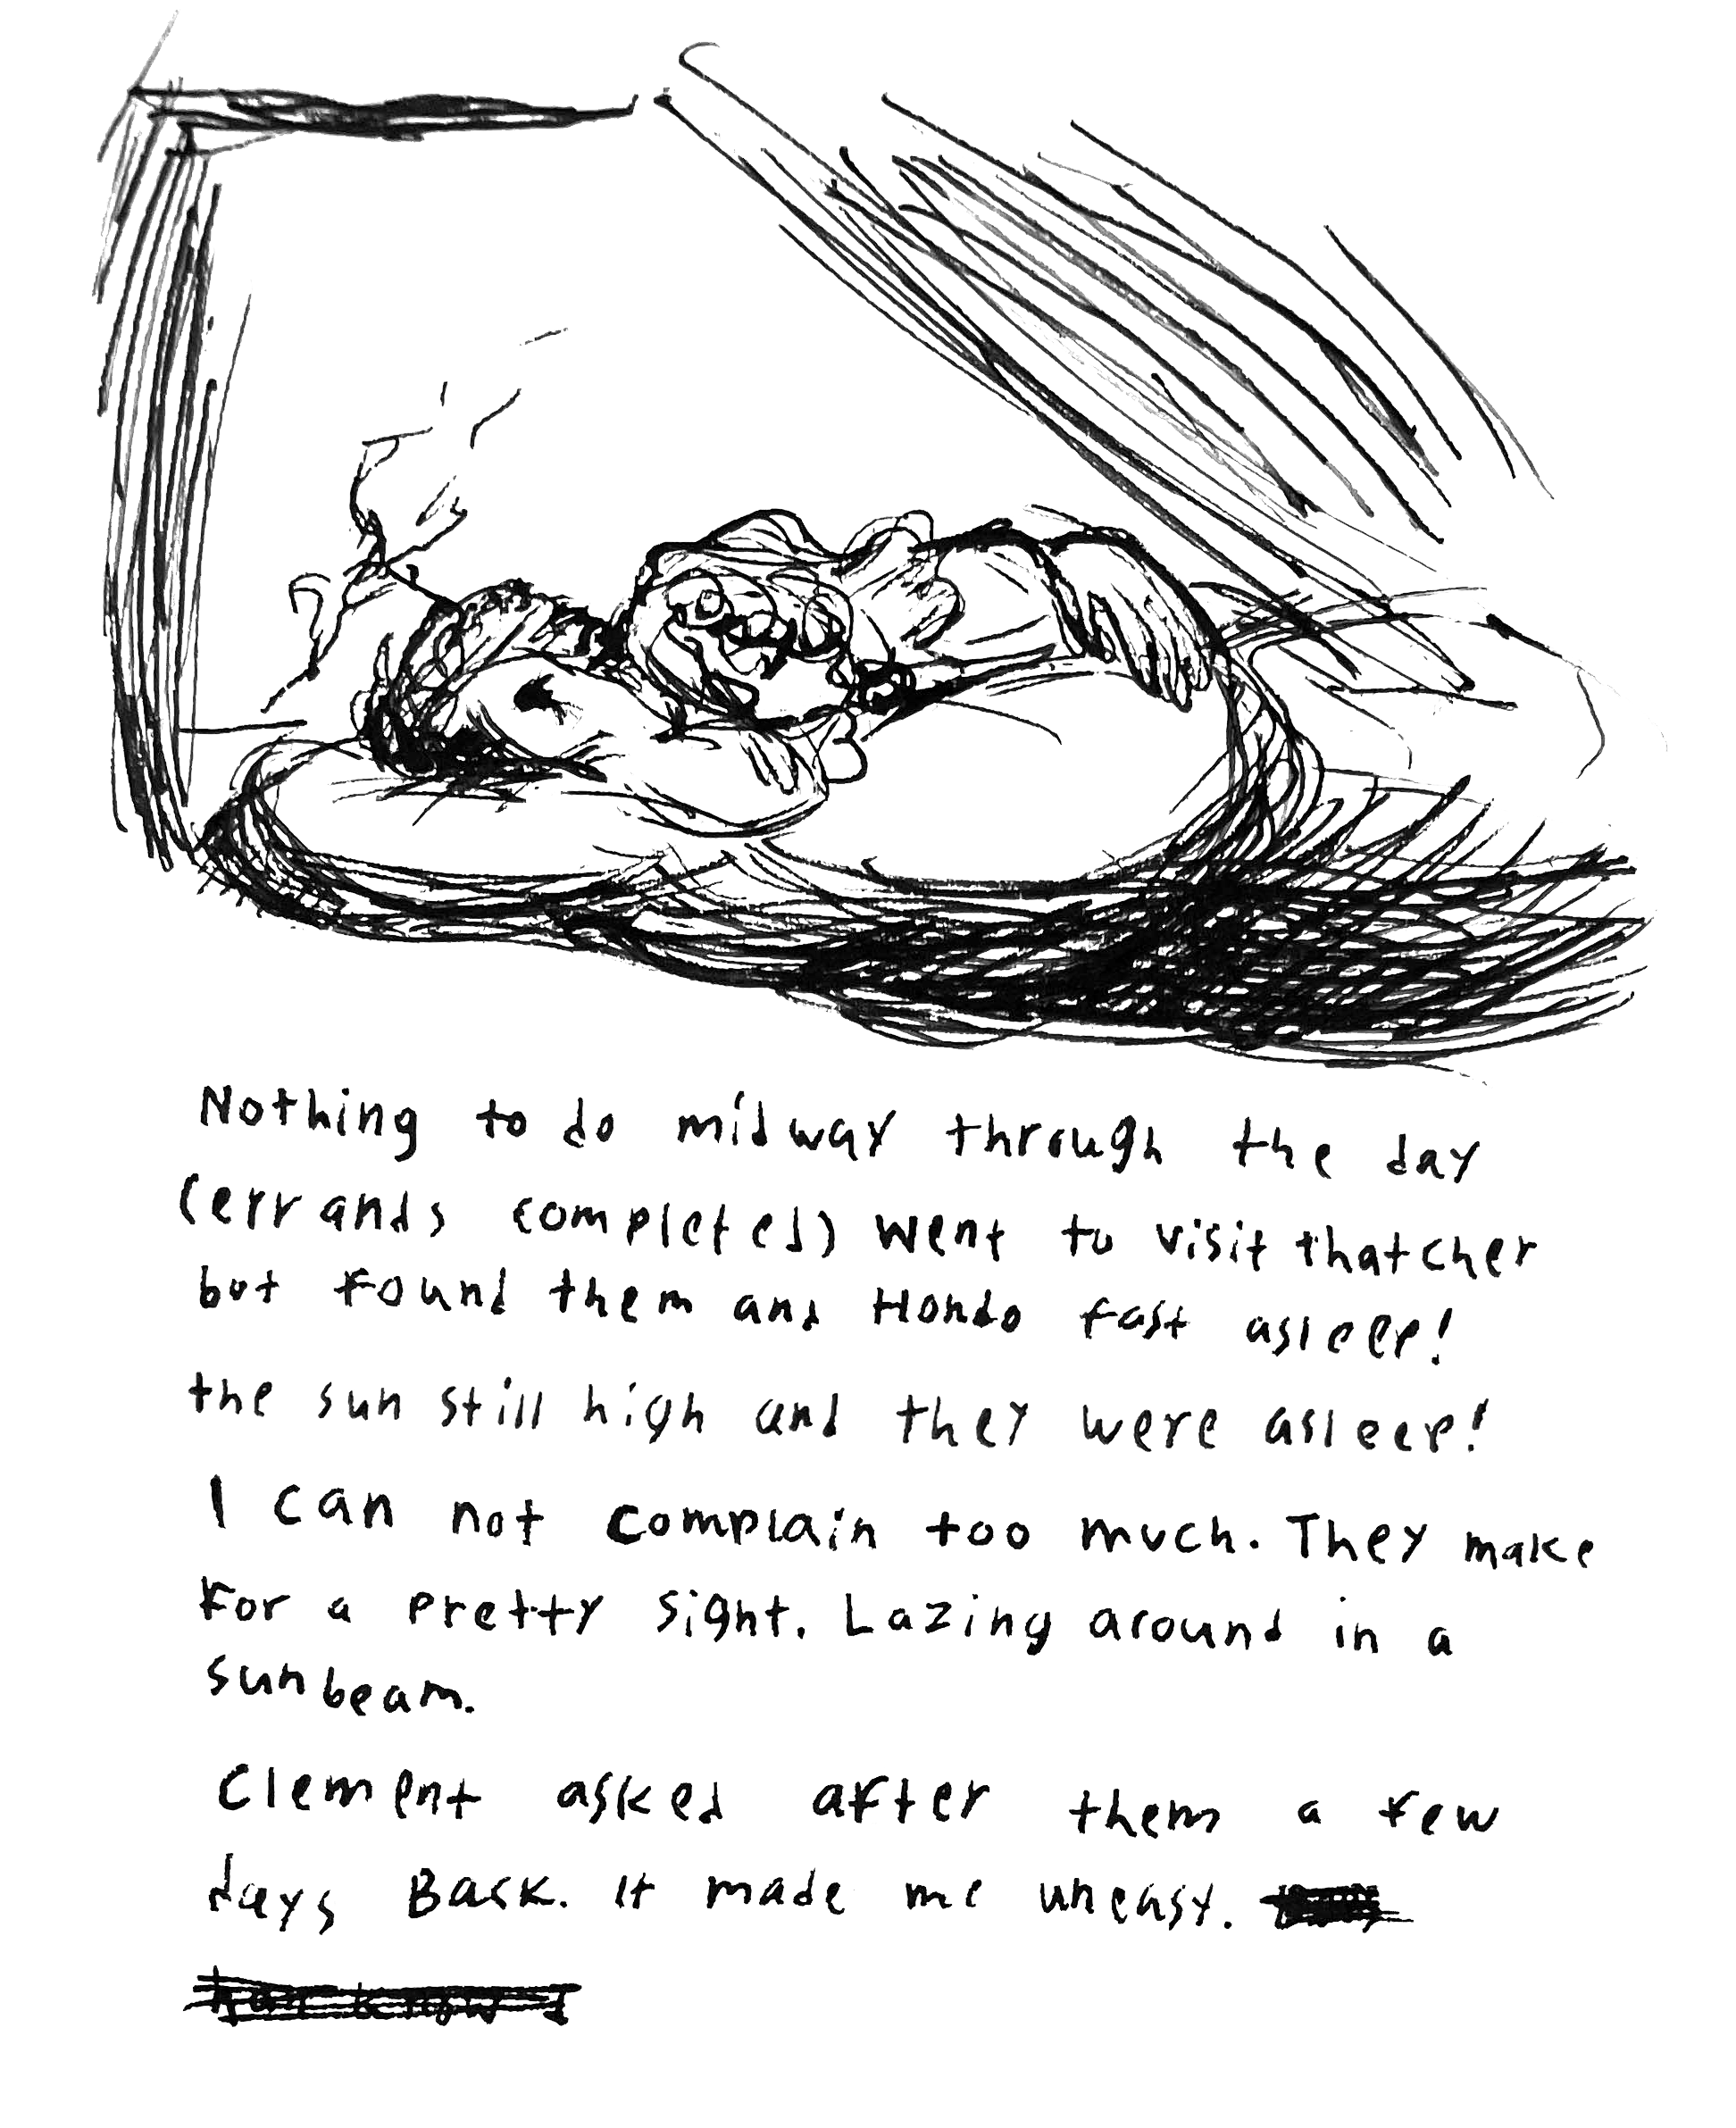 Nothing to do midway through the day
(errands completed) went to visit thatcher
but found them and Hondo fast asleep!
the sun still high and they were asleep!
I can not complain too much. They make
For a pretty sight. Lazing around in a
sunbeam.
Clement asked after them a few
days Back. It made me uneasy.